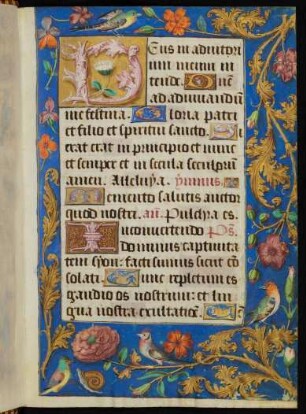 Deus in adiutori
um meum in
tende. Dne
ad adiuuandū
me festina. Gloria patri
et filio et spiritui sancto. Si
cut erat in principio et nunc
et semper et in secula seculorum
amen. Alleluya. ymnus.
Memento salutis auctor
quod nostri. añ. Pulchra es.
In conuertendo ps.
dominus captiuita
tem syon: facti sumus sicut con
solati. Tunc repletum est
gaudio os nostrum: et lin
gua nostra exultatione.